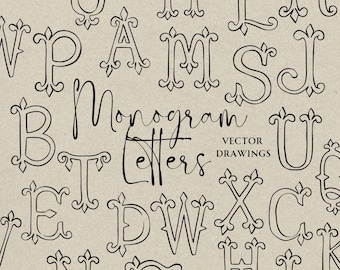 P A M S J
B Monogram U
T Letters VECTOR
DRAWINGS
E D W X C